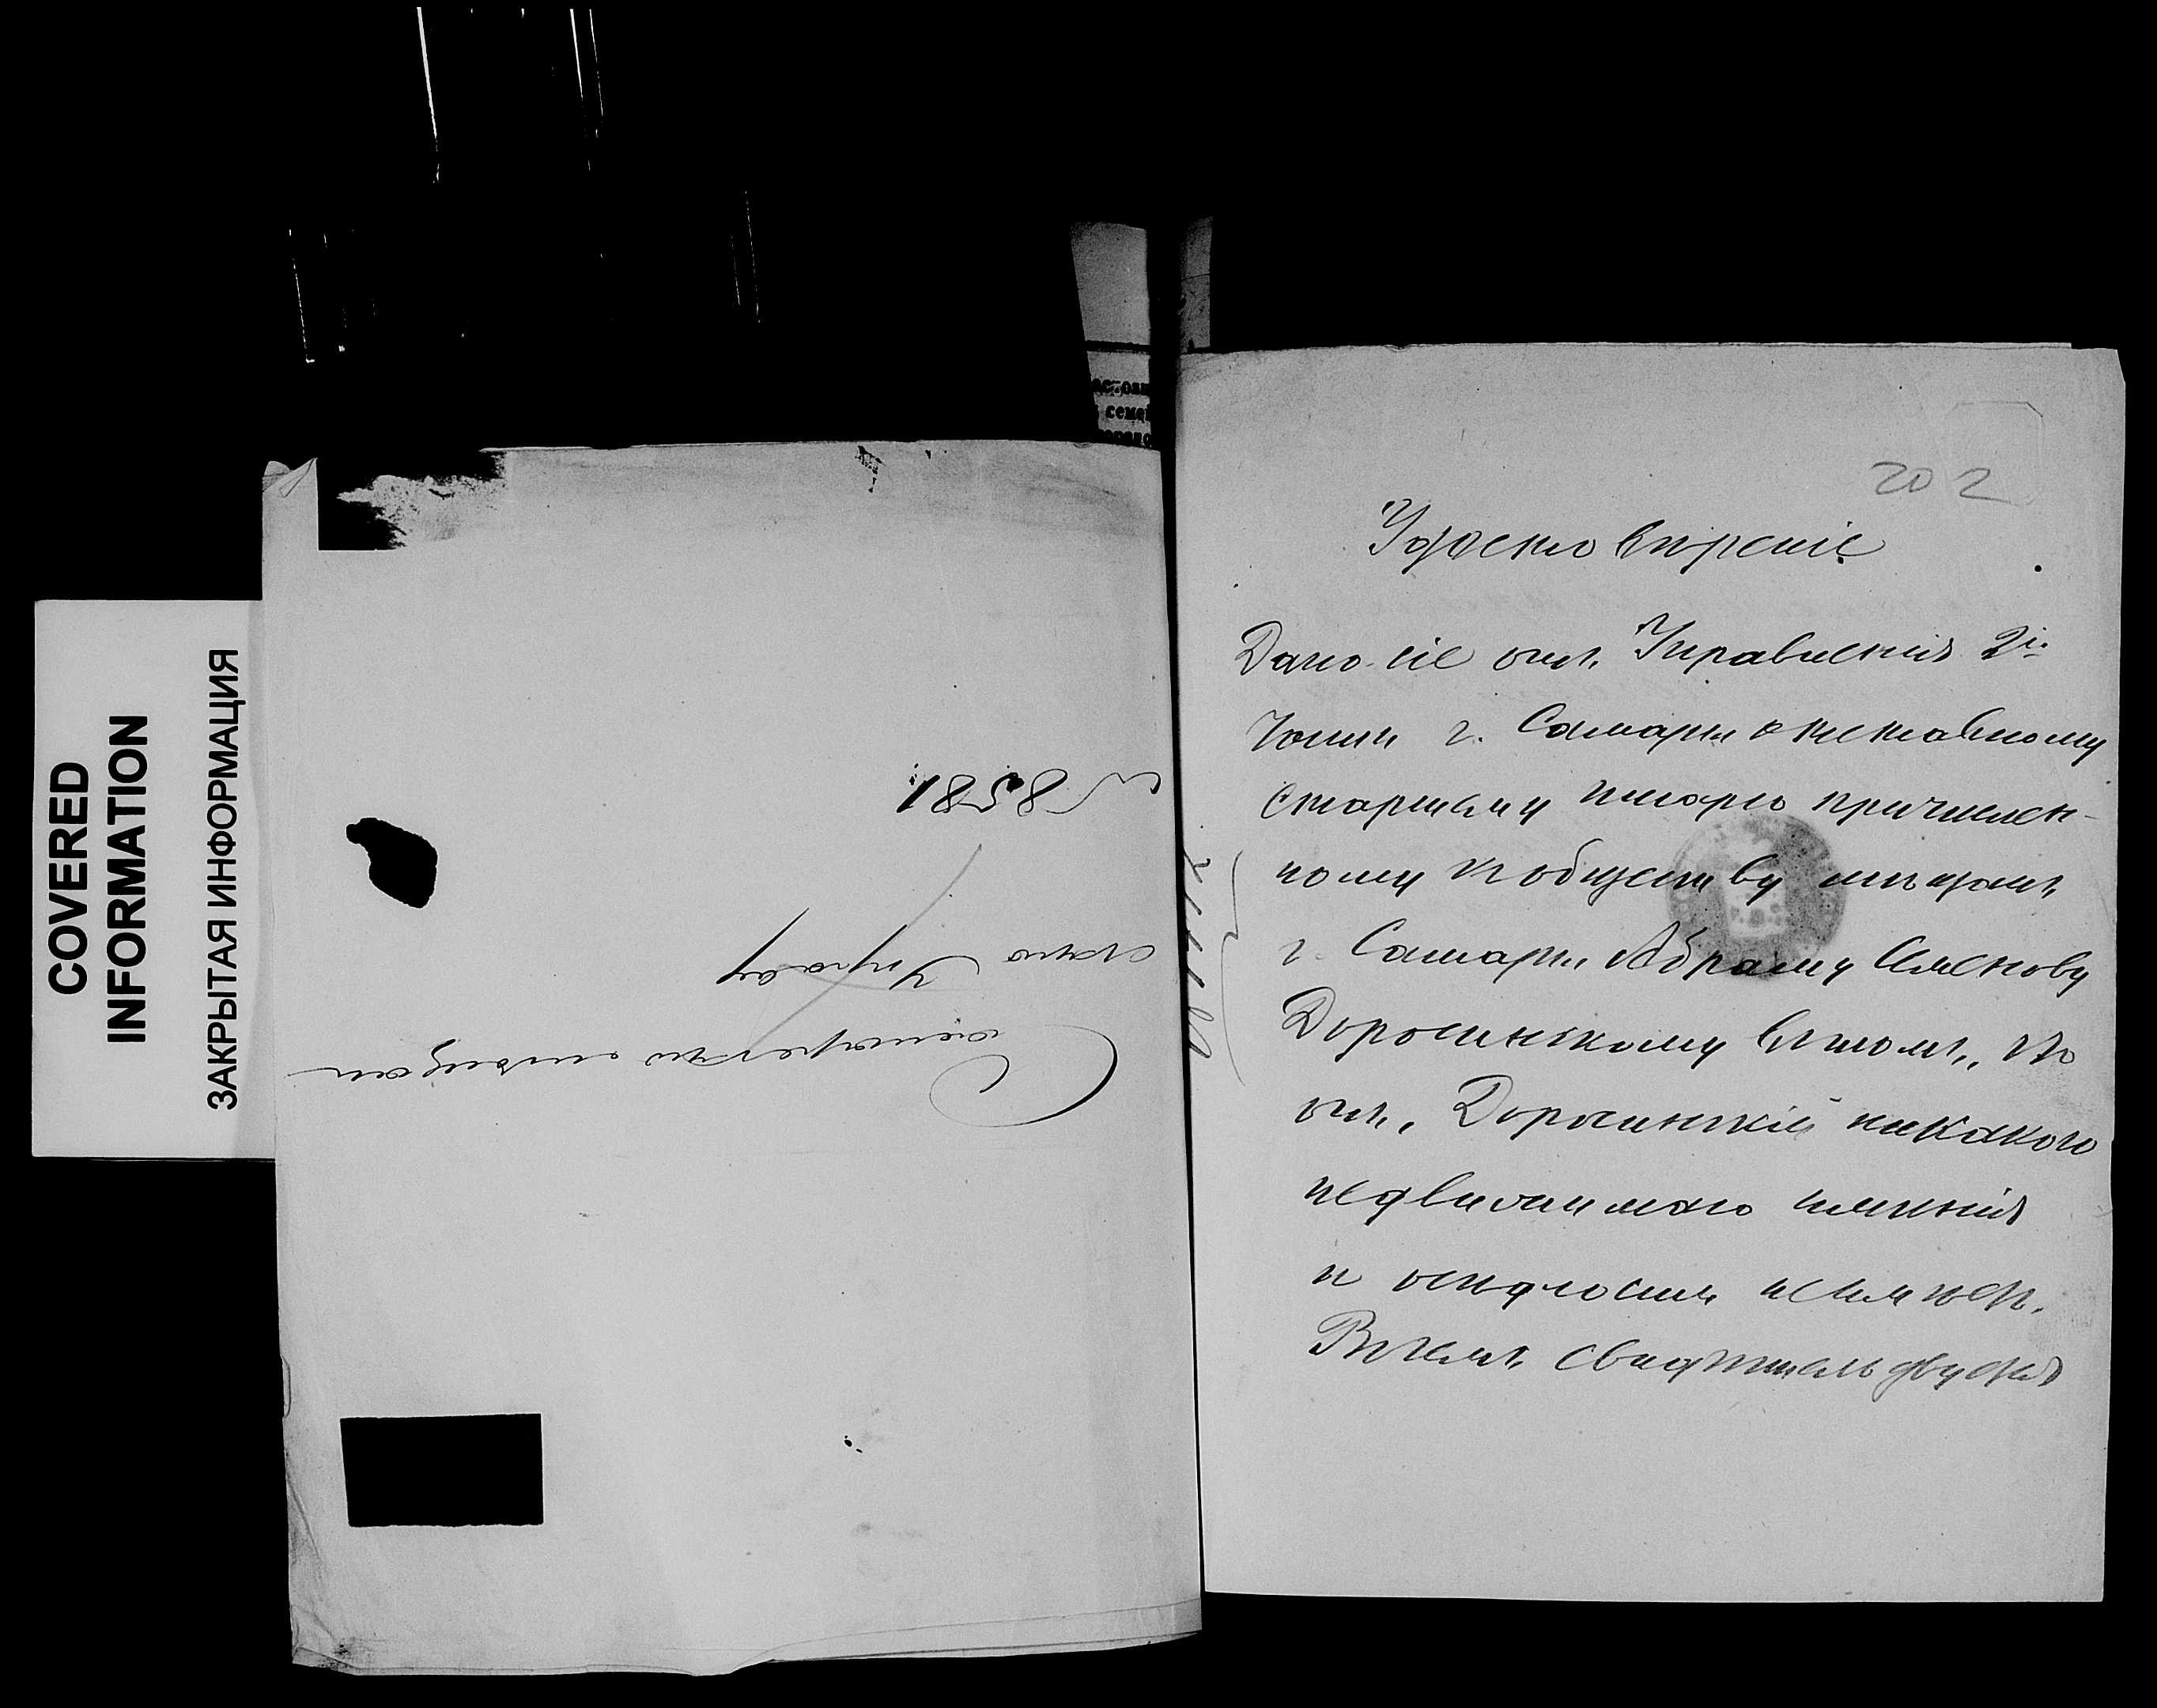 COVERED
INFORMATION
ЗАКРЫТАЯ ИНФОРМАЦИЯ
семе
№ 8581
скую Управу
Самарскую мѣщан
202
Удостовѣреніе
Дано сіе отъ Управленія 2й
части г. Самары отставному
старшему писарю причислен-
ному къ обществу мѣщанъ
г. Самары Абраму Семенову
Доросинскому въ томъ, что
онъ, Доросинскій никакого
недвижимаго имѣнія
и осѣдлости не имѣетъ.
Въ чемъ свидѣтельствуетъ